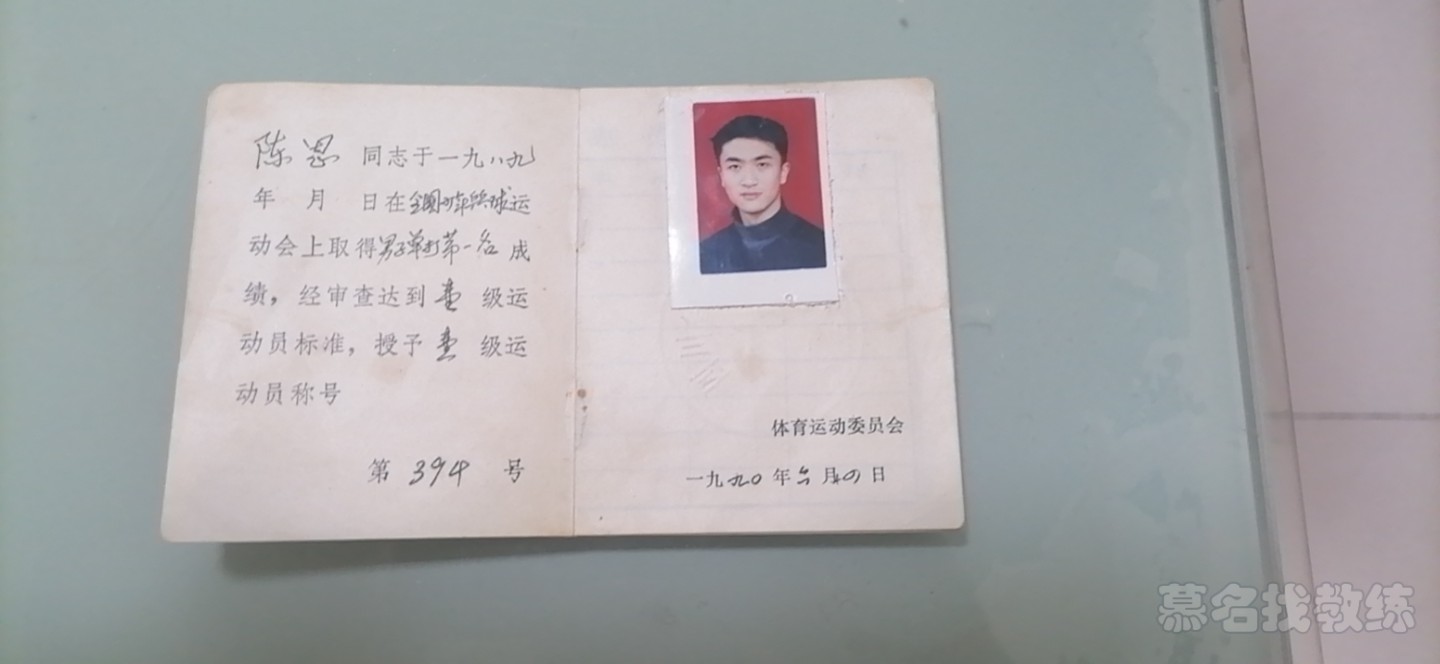 陈恩 同志于一九八九
年 月 日在全国少年 球运
动会上取得男子单打第一名成
绩，经审查达到壹级运
动员标准，授予壹级运
动员称号
第 394 号
体育运动委员会
一九九〇年六月 日
慕名找教练